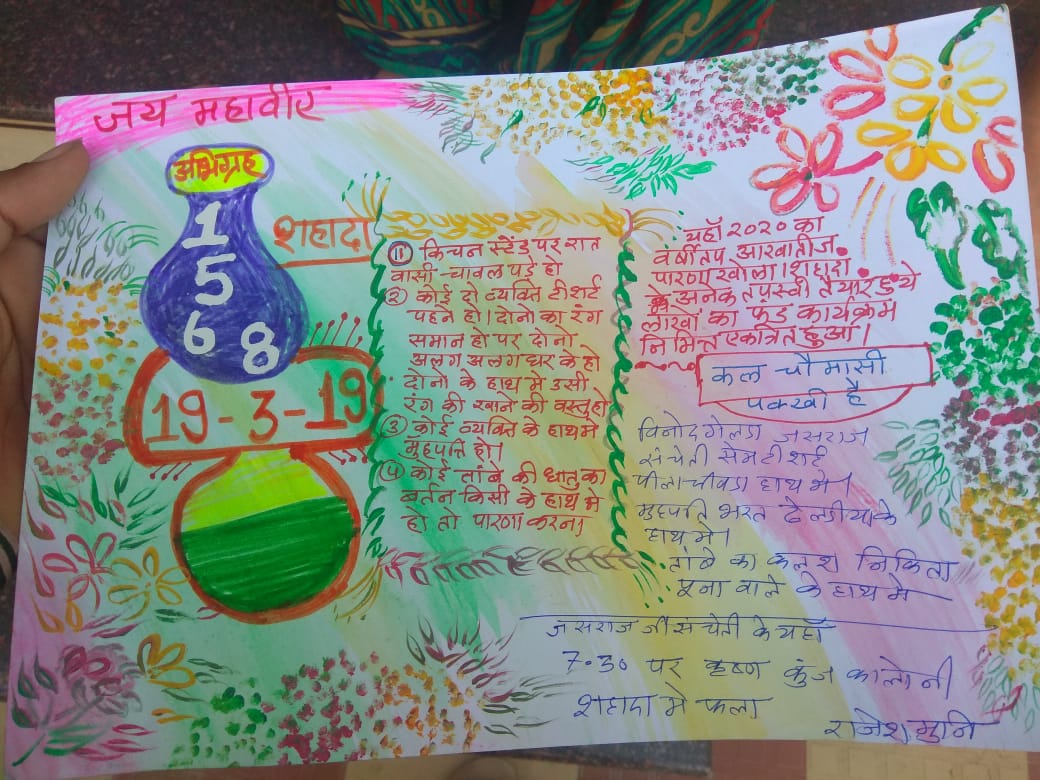 जय महावीर
अभिग्रह
1
5
6 8
शहादा
19-3-19
① किचन स्टेंड पर रात
वासी चावल पड़े हो
② कोई दो व्यक्ति टीशर्ट
पहने हो। दोनो का रंग
समान हो पर दोनो
अलग अलग घर के हो
दोनो के हाथ मे उसी
रंग की खाने की वस्तु हो
③ कोई व्यक्ति के हाथ मे
मुँहपत्ति हो।
④ कोई तांबे की धातु का
बर्तन किसी के हाथ मे
हो तो पारणा करना
यहाँ 2020 का
वर्षीतप आखातीज
पारणा खोला। शहादा
के अनेक तपस्वी तैयार हुये
लाखों का फंड कार्यक्रम
निमित्त एकत्रित हुआ।
कल चौमासी
पक्खी है
विनोद गेलडा जसराज
संचेती सेम टीशर्ट
पीला चीवडा हाथ मे।
मुहपत्ति भरत के
हाथ मे।
तांबे का कलश निकिता
पूना वाले के हाथ मे
जसराज जी संचेती के यहाँ
7.30 पर कृष्ण कुंज कालोनी
शहादा मे फला
राजेश मुनि